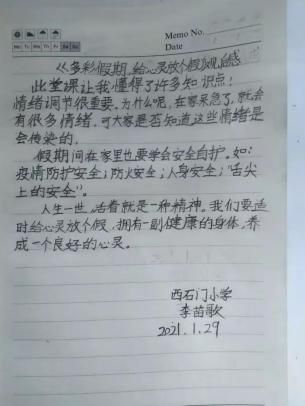 Memo No.
Date
Mo Tu We Th Fr Sa Su
《多彩假期,给心灵放个假》观后感
此堂课让我懂得了许多知识点!
情绪调节很重要。为什么呢,在家呆急了,就会
有很多情绪,可大家是否知道这些情绪是
会传染的.
假期间在家里也要学会安全自护。如:
疫情防护安全;防火安全;人身安全;“舌尖
上的安全”。
人生一世,活着就是一种精神。我们要适
时给心灵放个假,拥有一副健康的身体,养
成一个良好的心灵。
西石门小学
李苗歌
2021.1.29